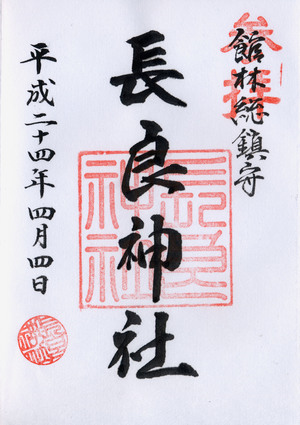 参拝
館林総鎮守
長良神社
平成二十四年四月四日
長良神社